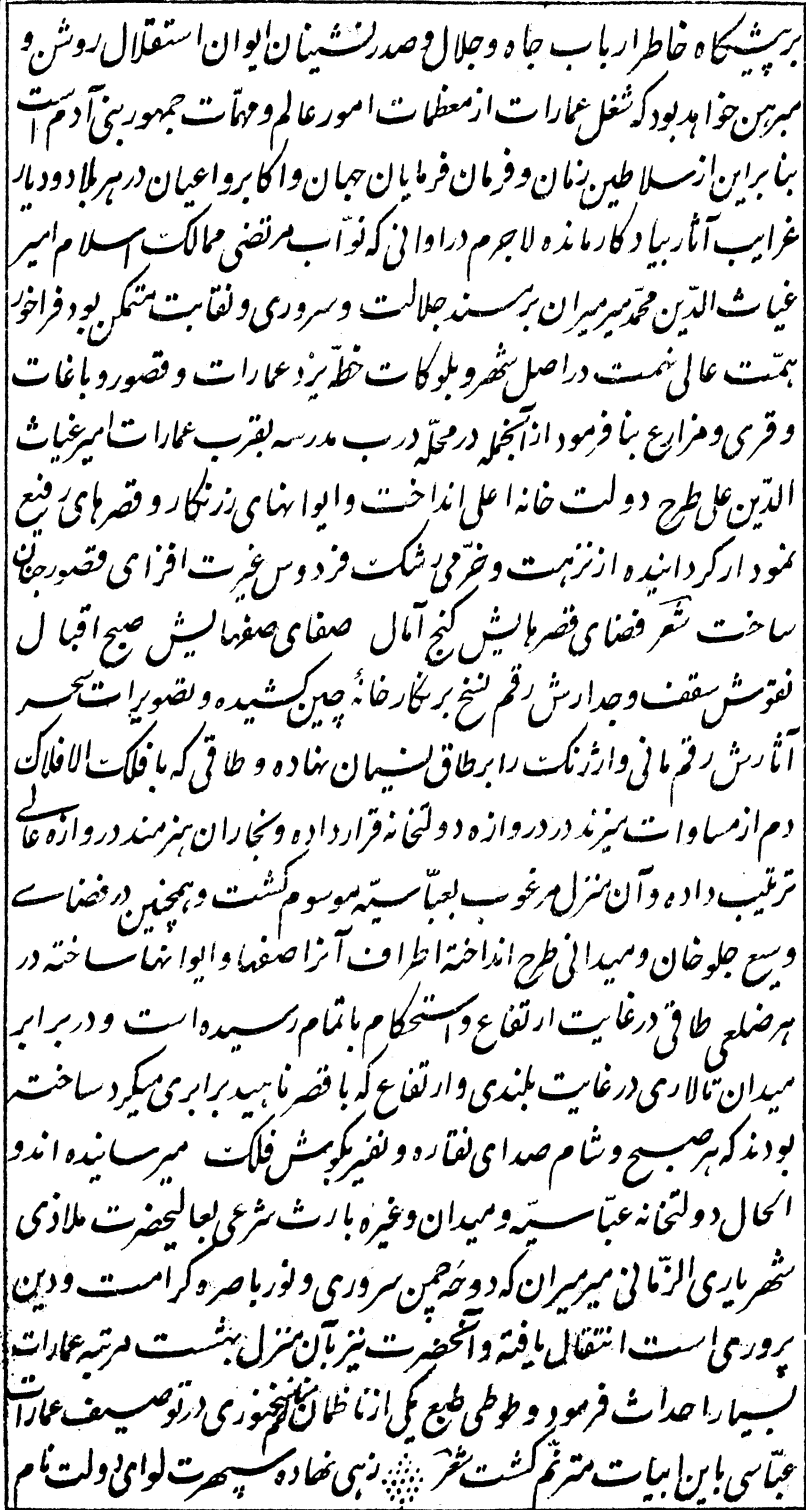 بر پیشگاه خاطر ارباب جاه و جلال و صدرنشینان ایوان استقلال روشن و
مبرهن خواهد بود که شغل عمارات از معظمات امور عالم و مهمّات جمهور بنی آدم است
بنا براین از سلاطین زمان و فرمان فرمایان جهان و اکابر و اعیان در هر بلاد و دیار
غرایب آثار بیادکار مانده لاجرم در اوانی که نوّاب مرتضی ممالک اسلام امیر
غیاث الدّین محمّد میرمیران بر مسند جلالت و سروری و نقابت متمکن بود فراخور
همّت عالی نهمت در اصل شهر و بلوکات خطّه یزد عمارات و قصور و باغات
و قری و مزارع بنا فرمود از آنجمله در محلّه درب مدرسه بقرب عمارات امیر غیاث
الدّین علی طرح دولت خانه اعلی انداخت و ایوانهای زرنکار و قصرهای رفیع
نمودار کردانیده از نزهت و خرّمی رشک فردوس غیرت افزای قصور جنان
ساخت شعر فضای قصرهایش کنج آمال صفای صفهایش صبح اقبال
نقوش سقف و جدارش رقم نسخ بر نکارخانهٔ چین کشیده و تصویرات سحر
آثارش رقم مانی و ارژنک را بر طاق نسیان نهاده و طاقی که با فلک الافلاک
دم از مساوات میزند در دروازه دولتخانه قرار داده و نجاران هنرمند دروازه عالی
ترتیب داده و آن منزل مرغوب بعبّاسیّه موسوم کشت و همچنین در فضای
وسیع جلوخان و میدانی طرح انداخته اطراف آنرا صفها و ایوانها ساخته در
هر ضلعی طاقی در غایت ارتفاع و استحکام باتمام رسیده است و در برابر
میدان تالاری در غایت بلندی و ارتفاع که با قصر ناهید برابری میکرد ساخته
بودند که هر صبح و شام صدای نقاره و نفیر بکوش فلک میرسانیده اند و
الحال دولتخانه عبّاسیّه و میدان و غیره بارث شرعی بعالیحضرت ملاذی
شهریاری الزّمانی میرمیران که دوحه چمن سروری و نور باصره کرامت و دین
پروری است انتقال یافته و آنحضرت نیز بآن منزل بهشت مرتبه عمارات
بسیار احداث فرمود و طوطی طبع یکی از ناظمان سخنوری در توصیف عمارات
عبّاسی باین ابیات مترنّم کشت شعر زهی نهاده سپهرت لوای دولت نام